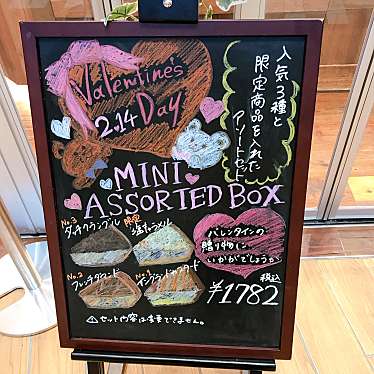 Valentine's
2.14 Day
人気3種と
限定商品を入れた
アソートセット
MINI
ASSORTED BOX
No.3
ダッチクランブル
限定
塩キャラメル
No.2
フレンチダマンド
No.1
イングランドカスタード
バレンタインの
贈り物に
いかがでしょうか
税込
¥1782
⚠セット内容は変更できません。